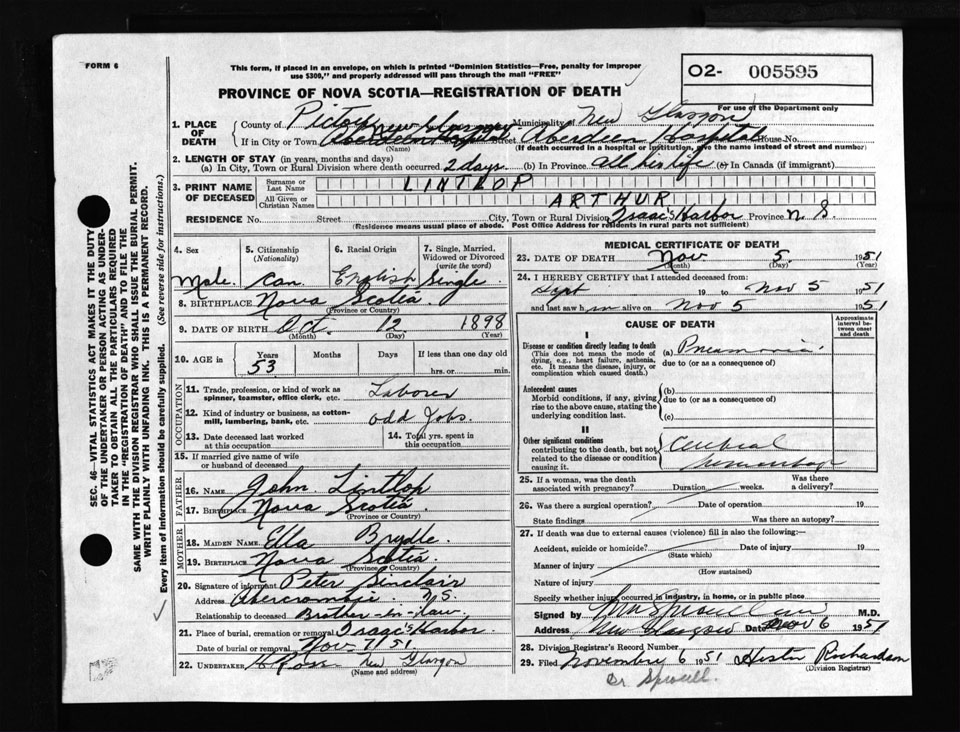 FORM 6
This form, if placed in an envelope, on which is printed "Dominion Statistics—Free, penalty for improper
use $300," and properly addressed will pass through the mail "FREE"
PROVINCE OF NOVA SCOTIA—REGISTRATION OF DEATH
O2- 005595
For use of the Department only
1. PLACE OF DEATH
County of Pictou Municipality of New Glasgow
If in City or Town New Glasgow Street Aberdeen Hospital House No.
(Name) (If death occurred in a hospital or institution, give the name instead of street and number)
2. LENGTH OF STAY (in years, months and days)
(a) In City, Town or Rural Division where death occurred 2 days (b) In Province all his life (c) In Canada (if immigrant)
3. PRINT NAME OF DECEASED
Surname or Last Name LINTLOP
All Given or Christian Names ARTHUR
RESIDENCE No. Street City, Town or Rural Division Isaac's Harbor Province N.S.
(Residence means usual place of abode. Post Office Address for residents in rural parts not sufficient)
4. Sex
Male
5. Citizenship (Nationality)
Can
6. Racial Origin
English
7. Single, Married, Widowed or Divorced (write the word)
Single
8. BIRTHPLACE Nova Scotia
(Province or Country)
9. DATE OF BIRTH Oct. 12 1898
(Month) (Day) (Year)
10. AGE in Years Months Days If less than one day old
53 hrs. or min.
OCCUPATION
11. Trade, profession, or kind of work as spinner, teamster, office clerk, etc. Laborer
12. Kind of industry or business, as cotton-mill, lumbering, bank, etc. odd Jobs
13. Date deceased last worked at this occupation
14. Total yrs. spent in this occupation
15. If married give name of wife or husband of deceased
FATHER
16. NAME John Lintlop
17. Birthplace Nova Scotia
(Province or Country)
MOTHER
18. MAIDEN NAME Ella Brydle
19. BIRTHPLACE Nova Scotia
(Province or Country)
20. Signature of informant Peter Sinclair
Address Abercrombie N.S.
Relationship to deceased Brother-in-law
21. Place of burial, cremation or removal Isaac's Harbor
Date of burial or removal Nov 7/51
22. UNDERTAKER Ross New Glasgow
(Name and address)
MEDICAL CERTIFICATE OF DEATH
23. DATE OF DEATH Nov 5 1951
(Month) (Day) (Year)
24. I HEREBY CERTIFY that I attended deceased from
Sept 19 to Nov 5 1951
and last saw him alive on Nov 5 1951
CAUSE OF DEATH
Approximate interval between onset and death
I
Disease or condition directly leading to death (a) Pneumonia
(This does not mean the mode of dying, e.g., heart failure, asthenia, etc. It means the disease, injury, or complication which caused death.)
due to (or as a consequence of)
Antecedent causes
Morbid conditions, if any, giving rise to the above cause, stating the underlying condition last.
(b)
due to (or as a consequence of)
(c)
II
Other significant conditions contributing to the death, but not related to the disease or condition causing it.
Cerebral
Hemorrhage
25. If a woman, was the death associated with pregnancy? Duration weeks. Was there a delivery?
26. Was there a surgical operation? Date of operation 19
State findings Was there an autopsy?
27. If death was due to external causes (violence) fill in also the following:—
Accident, suicide or homicide? Date of injury 19
(State which)
Manner of injury
(How sustained)
Nature of injury
Specify whether injury occurred in industry, in home, or in public place
Signed by M.D.
Address New Glasgow Date Nov 6 1951
28. Division Registrar's Record Number
29. Filed November 6 1951 Hester Richardson
(Division Registrar)
Dr Sproull.
SEC. 46—VITAL STATISTICS ACT MAKES IT THE DUTY
OF THE UNDERTAKER OR PERSON ACTING AS UNDER-
TAKER TO OBTAIN ALL THE PARTICULARS REQUIRED
IN THE "REGISTRATION OF DEATH" AND TO FILE THE
SAME WITH THE DIVISION REGISTRAR WHO SHALL ISSUE THE BURIAL PERMIT.
WRITE PLAINLY WITH UNFADING INK. THIS IS A PERMANENT RECORD.
Every item of information should be carefully supplied. (See reverse side for instructions.)